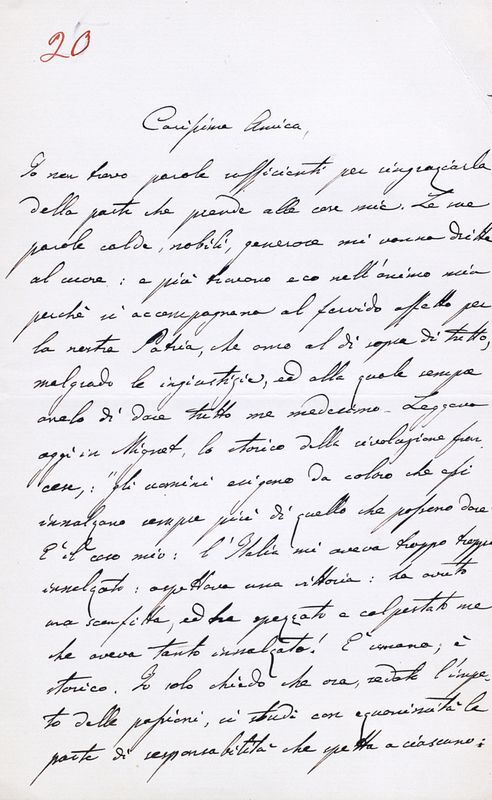 20
Carissima Amica,
Io non trovo parole sufficienti per ringraziarla
della parte che prende alle cose mie. Le sue
parole calde, nobili, generose mi vanno dritte
al cuore: e più trovano eco nell'animo mio
perchè si accompagnano al fervido affetto per
la nostra Patria, che amo al di sopra di tutto,
malgrado le ingiustizie, ed alla quale sempre
anelo di dare tutto me medesimo. Leggevo
oggi in Mignet, lo storico della rivoluzione fran
cese,: "gli uomini esigono da coloro che essi
innalzano sempre più di quello che possono dare
È il caso mio: l'Italia mi aveva troppo troppo
innalzato: aspettava una vittoria: ha avuto
una sconfitta, ed ha spezzato e calpestato me
che aveva tanto innalzato! È umano; è
storico. Io solo chiedo che ora, sedato l'impe
to delle passioni, si studi con equanimità le
parte di responsabilità che spetta a ciascuno: